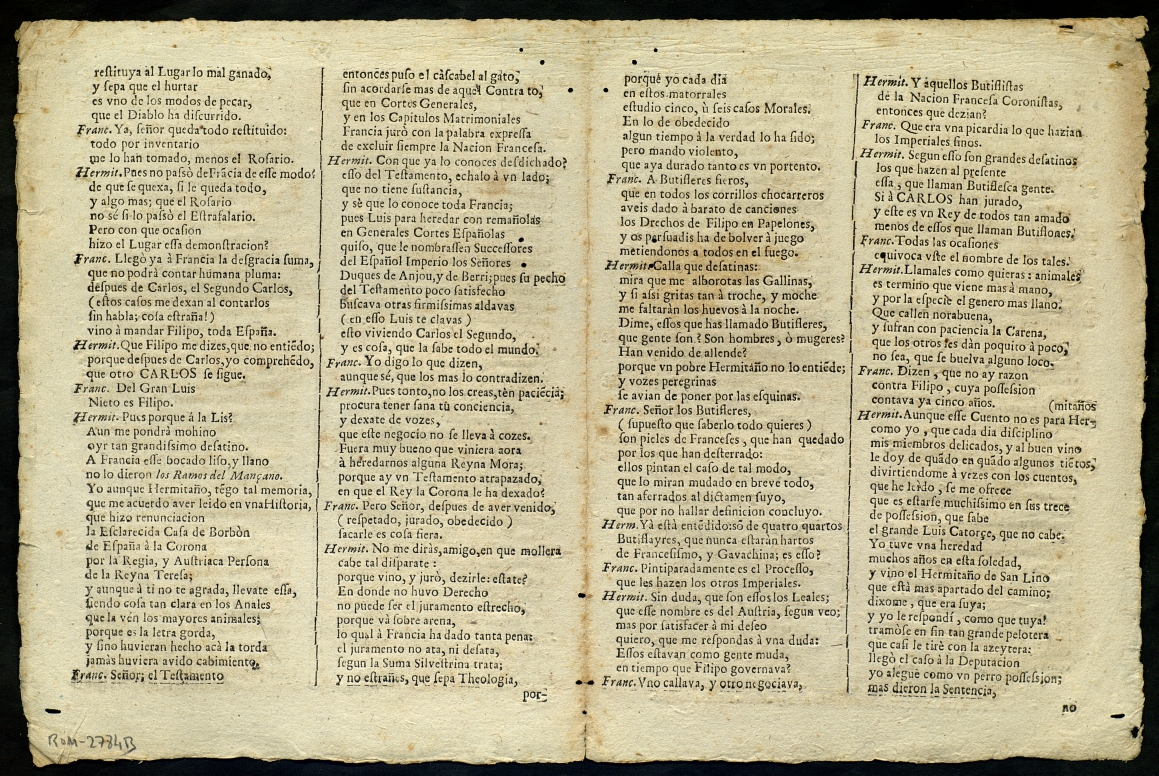 restituya al Lugar lo mal ganado,
y sepa que el hurtar
es vno de los modos de pecar,
que el Diablo ha discurrido.
Franc. Ya, señor queda todo restituìdo:
todo por inventario
me lo han tomado, menos el Rosario.
Hermit. Pues no passò de Frãcia de esse modo?
de que se quexa, si le queda todo,
y algo mas; que el Rosario
no sé si lo passò el Estrafalario.
Pero con que ocasion
hizo el Lugar essa demonstracion?
Franc. Llegò ya à Francia la desgracia suma,
que no podrà contar humana pluma:
despues de Carlos, el Segundo Carlos,
(estos casos me dexan al contarlos
sin habla; cosa estraña!)
vino à mandar Filipo, toda España.
Hermit. Que Filipo me dizes, que no entiẽdo;
porque despues de Carlos, yo comprehẽdo,
que otro CARLOS se sigue.
Franc. Del Gran Luis
Nieto es Filipo.
Hermit. Pues porque á la Lis?
Aun me pondrà mohino
oyr tan grandissimo desatino.
A Francia esse bocado liso, y llano
no lo dieron los Ramos del Mançano.
Yo aunque Hermitaño, tẽgo tal memoria,
que me acuerdo aver leido en vna Historia,
que hizo renunciacion
la Esclarecida Casa de Borbòn
de España à la Corona
por la Regia, y Austriaca Persona
de la Reyna Teresa;
y aunque à ti no te agrada, llevate essa,
siendo cosa tan clara en los Anales
que la vén los mayores animales;
porque es la letra gorda,
y sino huvieran hecho acà la torda
jamàs huviera avido cabimiento.
Franc. Señor; el Testamento
entonces puso el càscabel al gato,
sin acordarse mas de aquel Contrato,
que en Cortes Generales,
y en los Capitulos Matrimoniales
Francia juró con la palabra expressa
de excluir siempre la Nacion Francesa.
Hermit. Con que ya lo conoces desdichado?
esso del Testamento, echalo à vn lado;
que no tiene sustancia,
y sè que lo conoce toda Francia;
pues Luis para heredar con remañolas
en Generales Cortes Españolas
quiso, que le nombrassen Successores
del Español Imperio los Señores
Duques de Anjou, y de Berri; pues su pecho
del Testamento poco satisfecho
buscava otras firmissimas aldavas
(en esso Luis te clavas)
esto viviendo Carlos el Segundo,
y es cosa, que la sabe todo el mundo.
Franc. Yo digo lo que dizen,
aunque sé, que los mas lo contradizen.
Hermit. Pues tonto, no los creas, tèn paciẽcia;
procura tener sana tù conciencia,
y dexate de vozes,
que este negocio no se lleva à cozes.
Fuera muy bueno que viniera aora
à heredarnos alguna Reyna Mora;
porque ay vn Testamento atrapazado,
en que el Rey la Corona le ha dexado?
Franc. Pero Señor, despues de aver venido,
(respetado, jurado, obedecido)
sacarle es cosa fiera.
Hermit. No me diràs, amigo, en que mollera
cabe tal disparate:
porque vino, y jurò, dezirle: estate?
En donde no huvo Derecho
no puede ser el juramento estrecho,
porque và sobre arena,
lo qual à Francia ha dado tanta pena:
el juramento no ata, ni desata,
segun la Suma Silvestrina trata;
y no estrañes, que sepa Theologia,
por-
porquè yo cada dia
en estos matorrales
estudio cinco, ù seis casos Morales.
En lo de obedecido
algun tiempo à la verdad lo ha sido;
pero mando violento,
que aya durado tanto es vn portento.
Franc. A Butifleres fieros,
que en todos los corrillos chocarreros
aveis dado à barato de canciones
los Drechos de Filipo en Papelones,
y os persuadis ha de bolver à juego
metiendonos a todos en el fuego.
Hermit. Calla que desatinas:
mira que me alborotas las Gallinas,
y si assi gritas tan à troche, y moche
me faltaràn los huevos à la noche.
Dime, essos que has llamado Butifleres,
que gente son? Son hombres, ò mugeres?
Han venido de allende?
porque vn pobre Hermitaño no lo entiẽde;
y vozes peregrinas
se avian de poner por las esquinas.
Franc. Señor los Butifleres,
(supuesto que saberlo todo quieres)
son pieles de Franceses, que han quedado
por los que han desterrado:
ellos pintan el caso de tal modo,
que lo miran mudado en breve todo,
tan aferrados al dictamen suyo,
que por no hallar definicion concluyo.
Herm. Yà està entẽdido: sõ de quatro quartos
Butiflayres, que nunca estaràn hartos
de Francesismo, y Gavachina; es esso?
Franc. Pintiparadamente es el Processo,
que les hazen los otros Imperiales.
Hermit. Sin duda, que son essos los Leales;
que esse nombre es del Austria, segun veo;
mas por satisfacer à mi deseo
quiero, que me respondas à vna duda:
Essos estavan como gente muda,
en tiempo que Filipo governava?
Franc. Vno callava, y otro negociava,
Hermit. Y aquellos Butiflistas
de la Nacion Francesa Coronistas,
entonces que dezian?
Franc. Que era vna picardia lo que hazian
los Imperiales finos.
Hermit. Segun esso son grandes desatinos
los que hazen al presente
essa, que llaman Butiflesca gente.
Si à CARLOS han jurado,
y este es vn Rey de todos tan amado
menos de essos que llaman Butiflones.
Franc. Todas las ocasiones
equivoca vste el nombre de los tales.
Hermit. Llamales como quieras: animales
es termino que viene mas à mano,
y por la especie el genero mas llano.
Que callen norabuena,
y sufran con paciencia la Carena,
que los otros les dàn poquito à poco,
no sea, que se buelva alguno loco.
Franc. Dizen, que no ay razon
contra Filipo, cuya possession
contava ya cinco años. (mitaños
Hermit. Aunque esse Cuento no es para Her-
como yo, que cada dia disciplino
mis miembros delicados, y al buen vino
le doy de quãdo en quãdo algunos tiẽtos,
divirtiendome à vezes con los cuentos,
que he leìdo, se me ofrece
que es estarse muchissimo en sus trece
de possession, que sabe
el grande Luis Catorçe, que no cabe.
Yo tuve vna heredad
muchos años en esta soledad,
y vino el Hermitaño de San Lino
que està mas apartado del camino;
dixome, que era suya;
y yo le respondí, como que tuya?
tramòse en fin tan grande pelotera
que casi le tirè con la azeytera:
llegò el caso à la Deputacion
yo alegué como vn perro possession;
mas dieron la Sentencia,
no
RoM-2784B